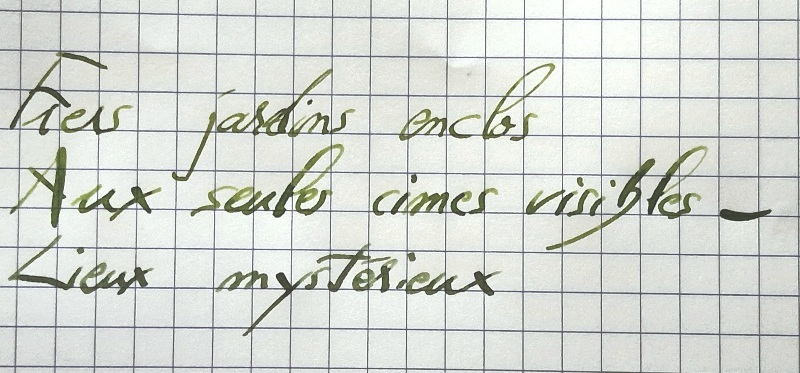 Fiers jardins enclos
Aux seules cimes visibles –
Lieux mystérieux